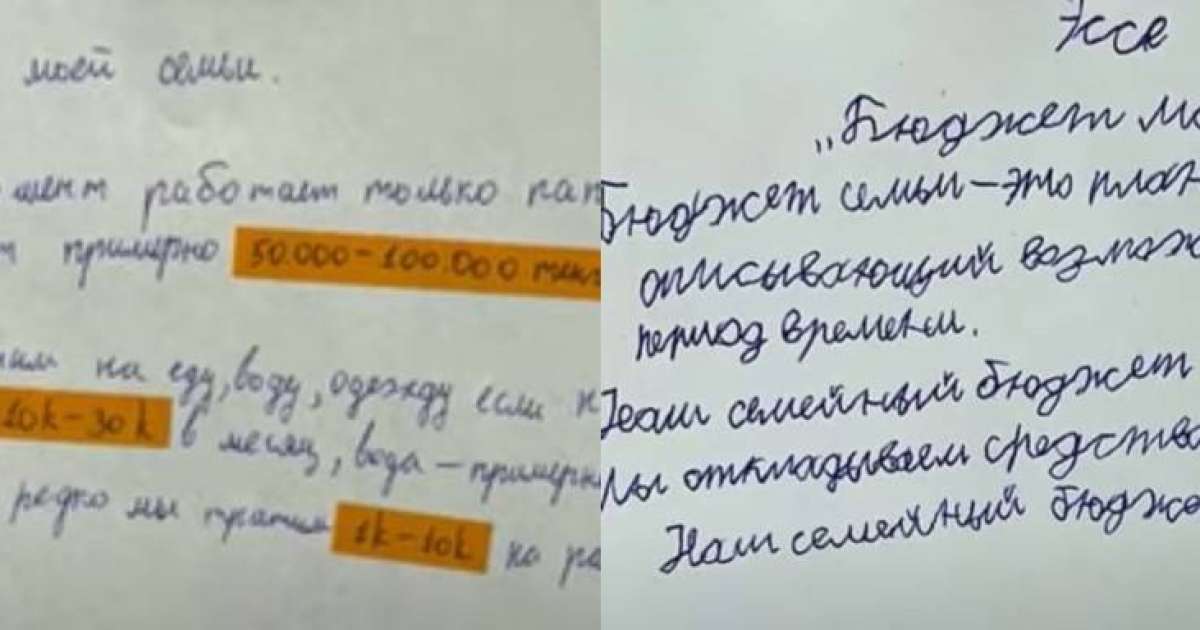 моей семьи.
работает только
примерно 50.000-100.000
на еду, воду, одежду если
10k-30k в месяц, вода - примерно
редко мы тратим 1k-10k на
Эссе
„Бюджет мо
Бюджет семьи - это план
описывающий возмож
период времени.
Наш семейный бюджет
Мы откладываем средства
Наш семейный бюдже